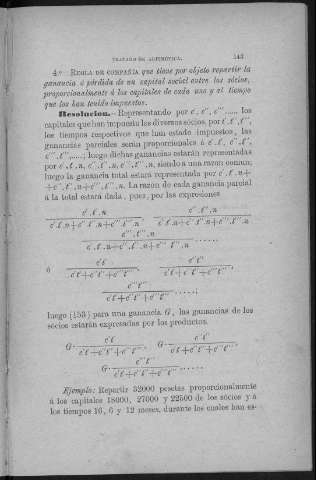 TRATADO DE ARITMÉTICA. 143
4.º REGLA DE COMPAÑÍA que tiene por objeto repartir la
ganancia ó pérdida de un capital social entre los sócios,
proporcionalmente á los capitales de cada uno y al tiempo
que los han tenido impuestos.
Resolucion.—Representando por c', c'', c'''...... los
capitales que han impuesto los diversos sócios, por t', t'', t''',
los tiempos respectivos que han estado impuestos, las
ganancias parciales serán proporcionales á c'.t', c''.t'',
c'''.t'''......; luego dichas ganancias estarán representadas
por c'.t'.n, c''.t''.n, c'''.t'''.n, siendo n una razon comun;
luego la ganancia total estará representada por c'.t'.n+
+c''.t''.n+c'''.t'''.n. La razon de cada ganancia parcial
á la total estará dada, pues, por las expresiones
c'.t'.n c''.t''.n
c'.t'.n+c''.t''.n+c'''.t'''.n , c'.t'.n+c''.t''.n+c'''.t'''.n
c'''.t'''.n
c'.t'.n+c''.t''.n+c'''.t'''.n ......
ó c't' c''t''
c't'+c''t''+c'''t''' , c't'+c''t''+c'''t''' ,
c'''t'''
c't'+c''t''+c'''t''' ......;
luego (153) para una ganancia G, las ganancias de los
sócios estarán expresadas por los productos.
G· c't' G· c''t''
c't'+c''t''+c'''t''' , c't'+c''t''+c'''t''' ,
G· c'''t'''
c't'+c''t''+c'''t''' ......
Ejemplo: Repartir 32000 pesetas proporcionalmente
á los capitales 18000, 27000 y 22500 de los sócios y á
los tiempos 16, 6 y 12 meses, durante los cuales han es-